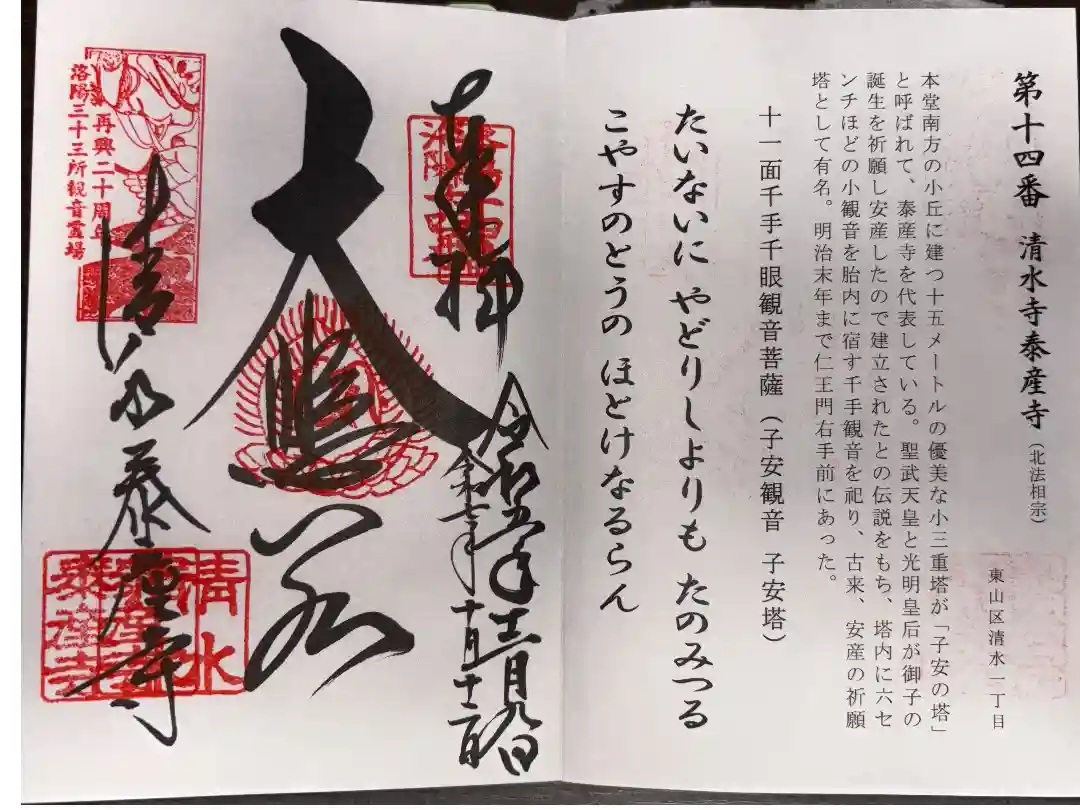 第十四番 清水寺泰産寺(北法相宗)
東山区清水一丁目
本堂南方の小丘に建つ十五メートルの優美な小三重塔が「子安の塔」
と呼ばれて、泰産寺を代表している。聖武天皇と光明皇后が御子の
誕生を祈願し安産したので建立されたとの伝説をもち、塔内に六セ
ンチほどの小観音を胎内に宿す千手観音を祀り、古来、安産の祈願
塔として有名。明治末年まで仁王門右手前にあった。
十一面千手千眼観音菩薩(子安観音 子安塔)
たいないに やどりしよりも たのみつる
こやすのとうの ほとけなるらん
奉拝
令和五年十一月九日
令和七年十月十二日
大悲閣
清水泰産寺
再興二十周年
洛陽三十三所観音霊場
清水
泰産寺